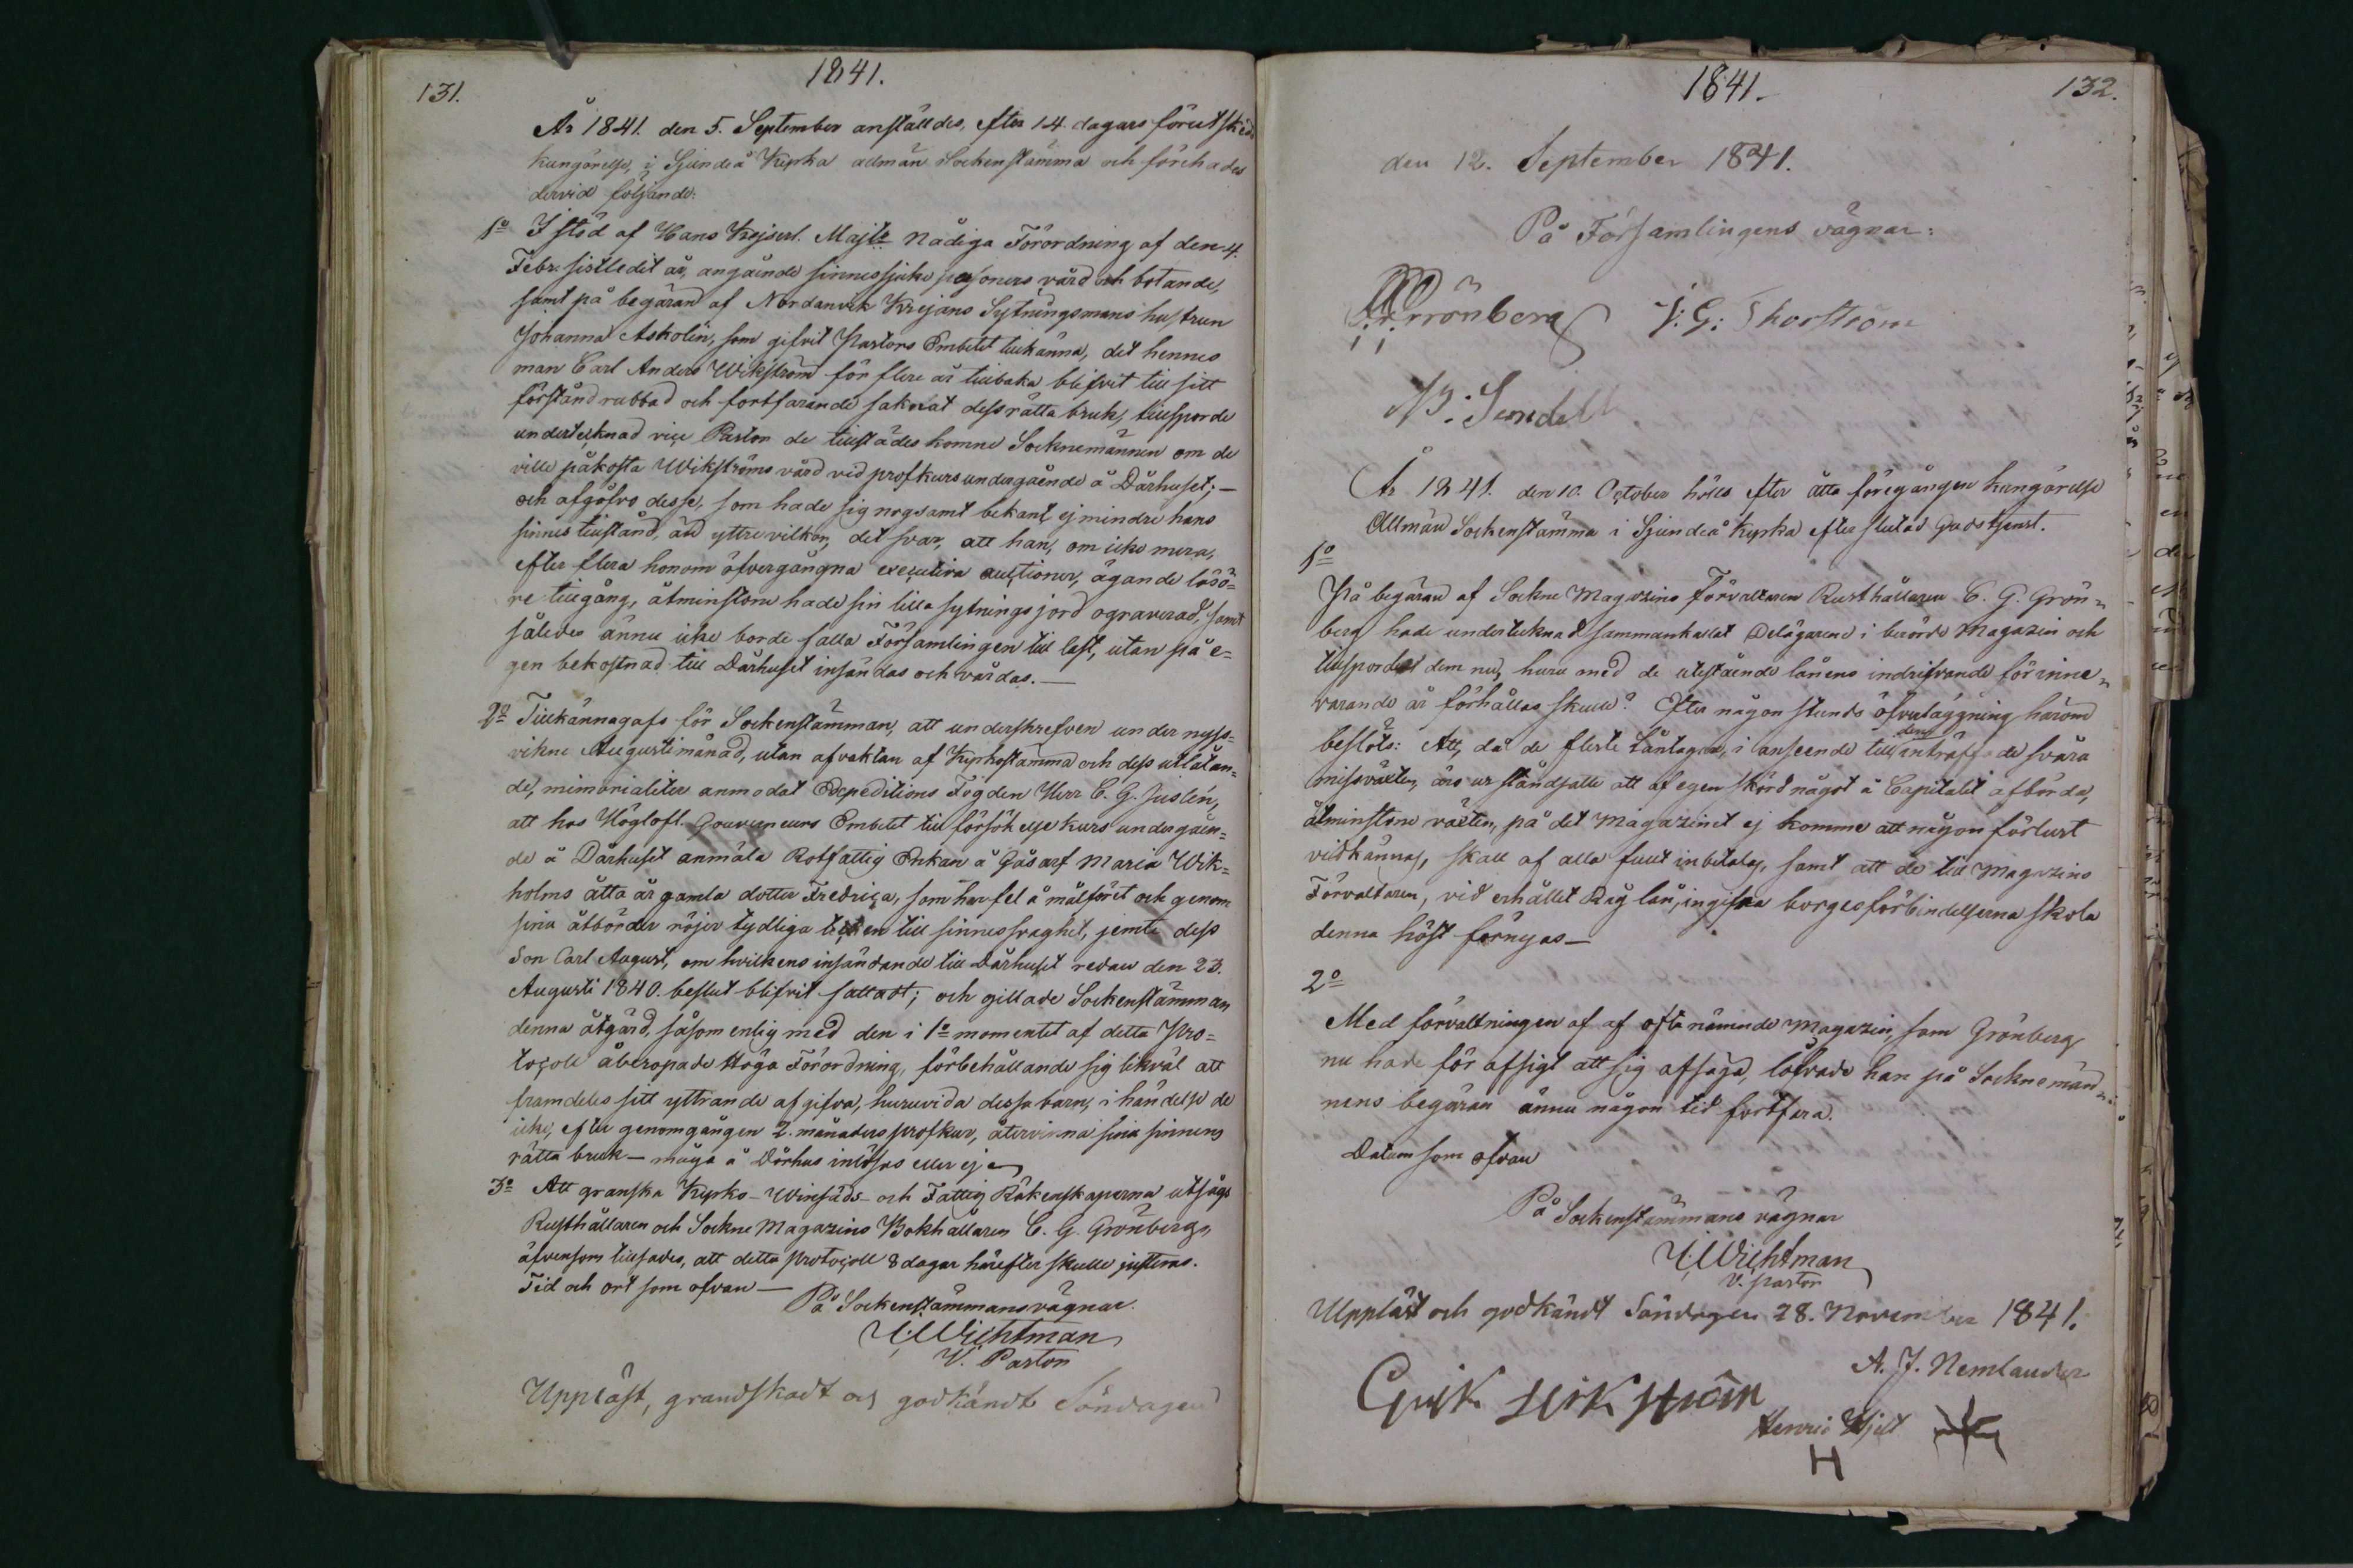 131.
1841.
År 1841. den 5. September anställdes, efter 14. dagars förutsked
kungörelse, i Sjundeå Kyrka allmän Sockenstämma och förehades
dervid följande:
1o I stöd af Hans Kejserl. Majts Nådiga Förordning af den 4.
Febr. sistledit år, angående sinnessjuke personers vård och botande,
samt på begäran af Nordanvik Krejans Sytningsmans hustrun
Johanna Askolin, som gifvit Pastors Embetet tillkänna, det hennes
man Carl Anders Wikström för flere år tillbaka blifvit till sitt
förstånd rubbad och fortfarande saknat dess rätta bruk, tillsporde
undertecknad vice Pastor de tillstädes komne Socknemännen om de
ville påkosta Wikströms vård vid profkurs undergående å Dårhuset; —
och afgåfvo desse, som hade sig nogsamt bekant, ej mindre hans
sinnes tillstånd, än yttre vilkor, det svar, att han, om icke mera,
efter flera honom öfvergångna executiva auctioner, ägande lösö=
re tillgång, åtminstone hade sin lilla sytningsjord ograverad, samt
således ännu icke borde falla Församlingen till last, utan på e=
gen bekostnad till Dårhuset insändas och vårdas. —
2o Tillkännagafs för Sockenstämman, att underskrefven under nyss=
vikne Augustimånad, utan afvaktan af Kyrkostämma och dess utlåtan=
de, mimorialiter anmodat Expeditions Fogden Herr C. G. Juslén,
att hos Höglofl. Gouverneurs Embetet till försökelsekurs undergåen=
de å Dårhuset anmäla Rotfattig Enkan å Gåsarf Maria Wik=
holms åtta år gamla dotter Fredrica, som har fel å målföret och genom
sina åtbörder röjer tydliga tecken till sinnessvaghet, jemte dess
Son Carl August, om hvilkens insändande till Dårhuset redan den 23.
Augusti 1840. beslut blifvit fattadt; och gillade Sockenstämman
denna åtgärd, såsom enlig med den i 1o momentet af detta Pro=
tocoll åberopade Höga Förordning, förbehållande sig likväl att
framdeles sitt yttrande afgifva, huruvida dessa barn, i händelse de
icke, efter genomgången 2. månaders profkur, återvinna sina sinnens
rätta bruk — måga å Dårhus inlösas eller ej —
3o Att granska Kyrko- Winsäds- och Fattig Räkenskaperna utsågs
Rusthållaren och Sockne Magazins Bokhållaren C. G. Grönberg,
äfvensom tillsades, att detta protocoll 8 dagar härefter skulle justeras.
Tid och ort som ofvan —
På Sockenstämmans vägnar.
Wichtman
V. Pastor
Uppläst, grandskadt och godkändt Söndagen
1841.
132.
den 12. September 1841.
På Församlingens vägnar:
Grönberg J: G: Thorström
Sendell
År 1841. den 10. October hölls efter åtta föregången kungörelse
Allmän Sockenstämma i Sjundeå Kyrka efter slutad Gudstjenst.
1o
På begäran af Sockne Magazins Förvaltaren Rusthållaren C. G. Grön=
berg hade undertecknad sammankallat Delägarene i berörde Magazin och
tillspordes dem nu, huru med de utestående lånens indrifvande för inne=
varande år förhållas skulle? Efter någon stunds öfverläggning härom
beslöts: Att, då de fleste Låntagra, i anseende till deras inträffade svåra
missväxter, äro ur stånd satte att af egen skörd något å Capitalet afbörda,
åtminstone växten, på det Magazinet ej komme att någon förlust
vidkännas, skall af alla fullt inbetalas, samt att de till Magazins
Förvaltaren, vid erhållet Råg lån, ingifna borgesförbindelserna skola
denna höst förnyas —
2o
Med förvaltningen af af oftanämnde Magazin, som Grönberg
nu hade för afsigt att sig afsäga, lofvade han på Socknemän=
nens begäran ännu någon tid fortfara.
Datum som ofvan
På Sockenstämmans vägnar
Wichtman
V. pastor
Uppläst och godkändt Söndagen 28. November 1841.
A. J. Nemlander
Henric Hjelt
H